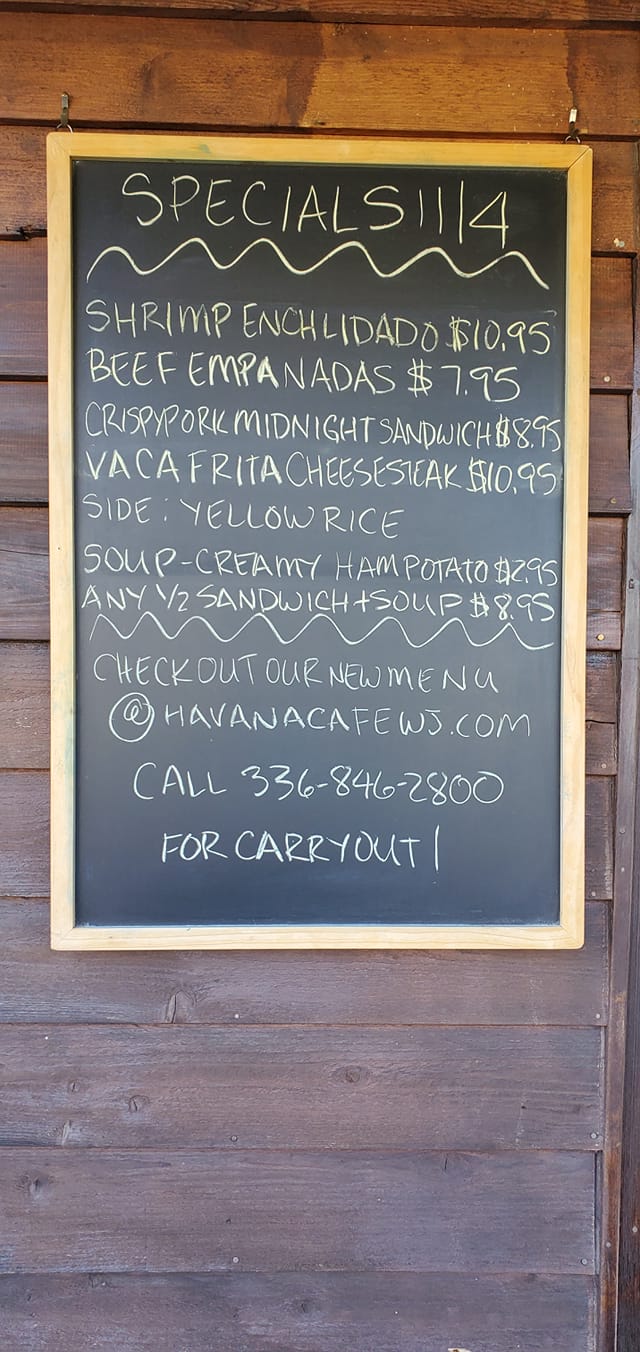 SPECIALS 11/4
SHRIMP ENCHLIDADO $10.95
BEEF EMPANADAS $7.95
CRISPY PORK MIDNIGHT SANDWICH $8.95
VACA FRITA CHEESESTEAK $10.95
SIDE: YELLOW RICE
SOUP-CREAMY HAM POTATO $2.95
ANY 1/2 SANDWICH + SOUP $8.95
CHECK OUT OUR NEW MENU
@ HAVANACAFEWJ.COM
CALL 336-846-2800
FOR CARRYOUT!